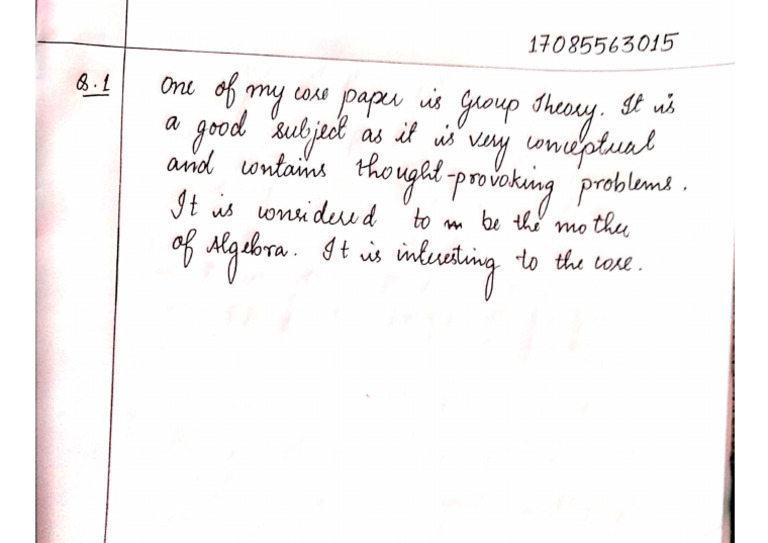 17085563015
Q.1 One of my core paper is Group Theory. It is
a good subject as it is very conceptual
and contains thought-provoking problems.
It is considered to m be the mother
of Algebra. It is interesting to the core.